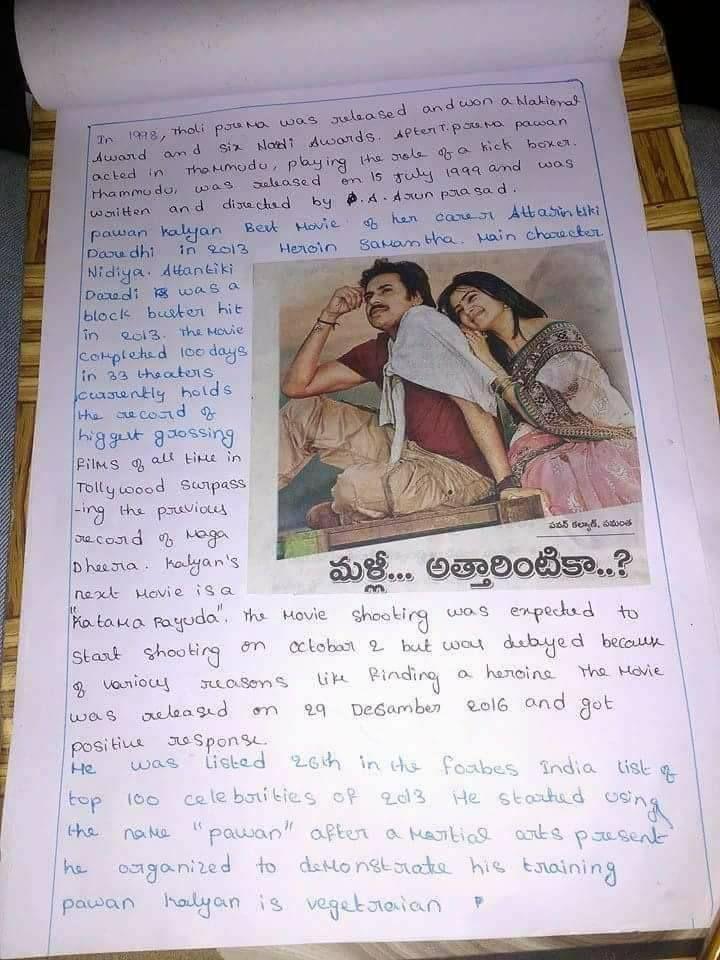 In 1998, Tholi prema was released and won a National
Award and six Nandi Awards. After T.prema pawan
acted in Thammudu, playing the role of a kick boxer.
Thammudu, was released on 15 July 1999 and was
written and directed by P.A. Arun prasad.
pawan kalyan Best Movie of her career Attarintiki
Daredhi in 2013 Heroin Samantha. Main charecter
Nidiya. Attantiki
Daredi was a
block buster hit
in 2013. The Movie
completed 100 days
in 33 theaters
currently holds
the record of
higgest grossing
Films of all time in
Tollywood surpass
-ing the previous
record of Maga
Dheera. Kalyan's
next Movie is a
"Katama Rayuda". The Movie shooting was expected to
start shooting on october 2 but was debayed because
of various reasons like Finding a heroine The Movie
was released on 29 Desamber 2016 and got
positive response.
He was listed 26th in the forbes India list of
top 100 celebrities of 2013 He started using
the name "pawan" after a martial arts present
he organized to demonstrate his training
pawan kalyan is vegetraian P
పవన్ కల్యాణ్, సమంత
మళ్లీ... అత్తారింటికా..?